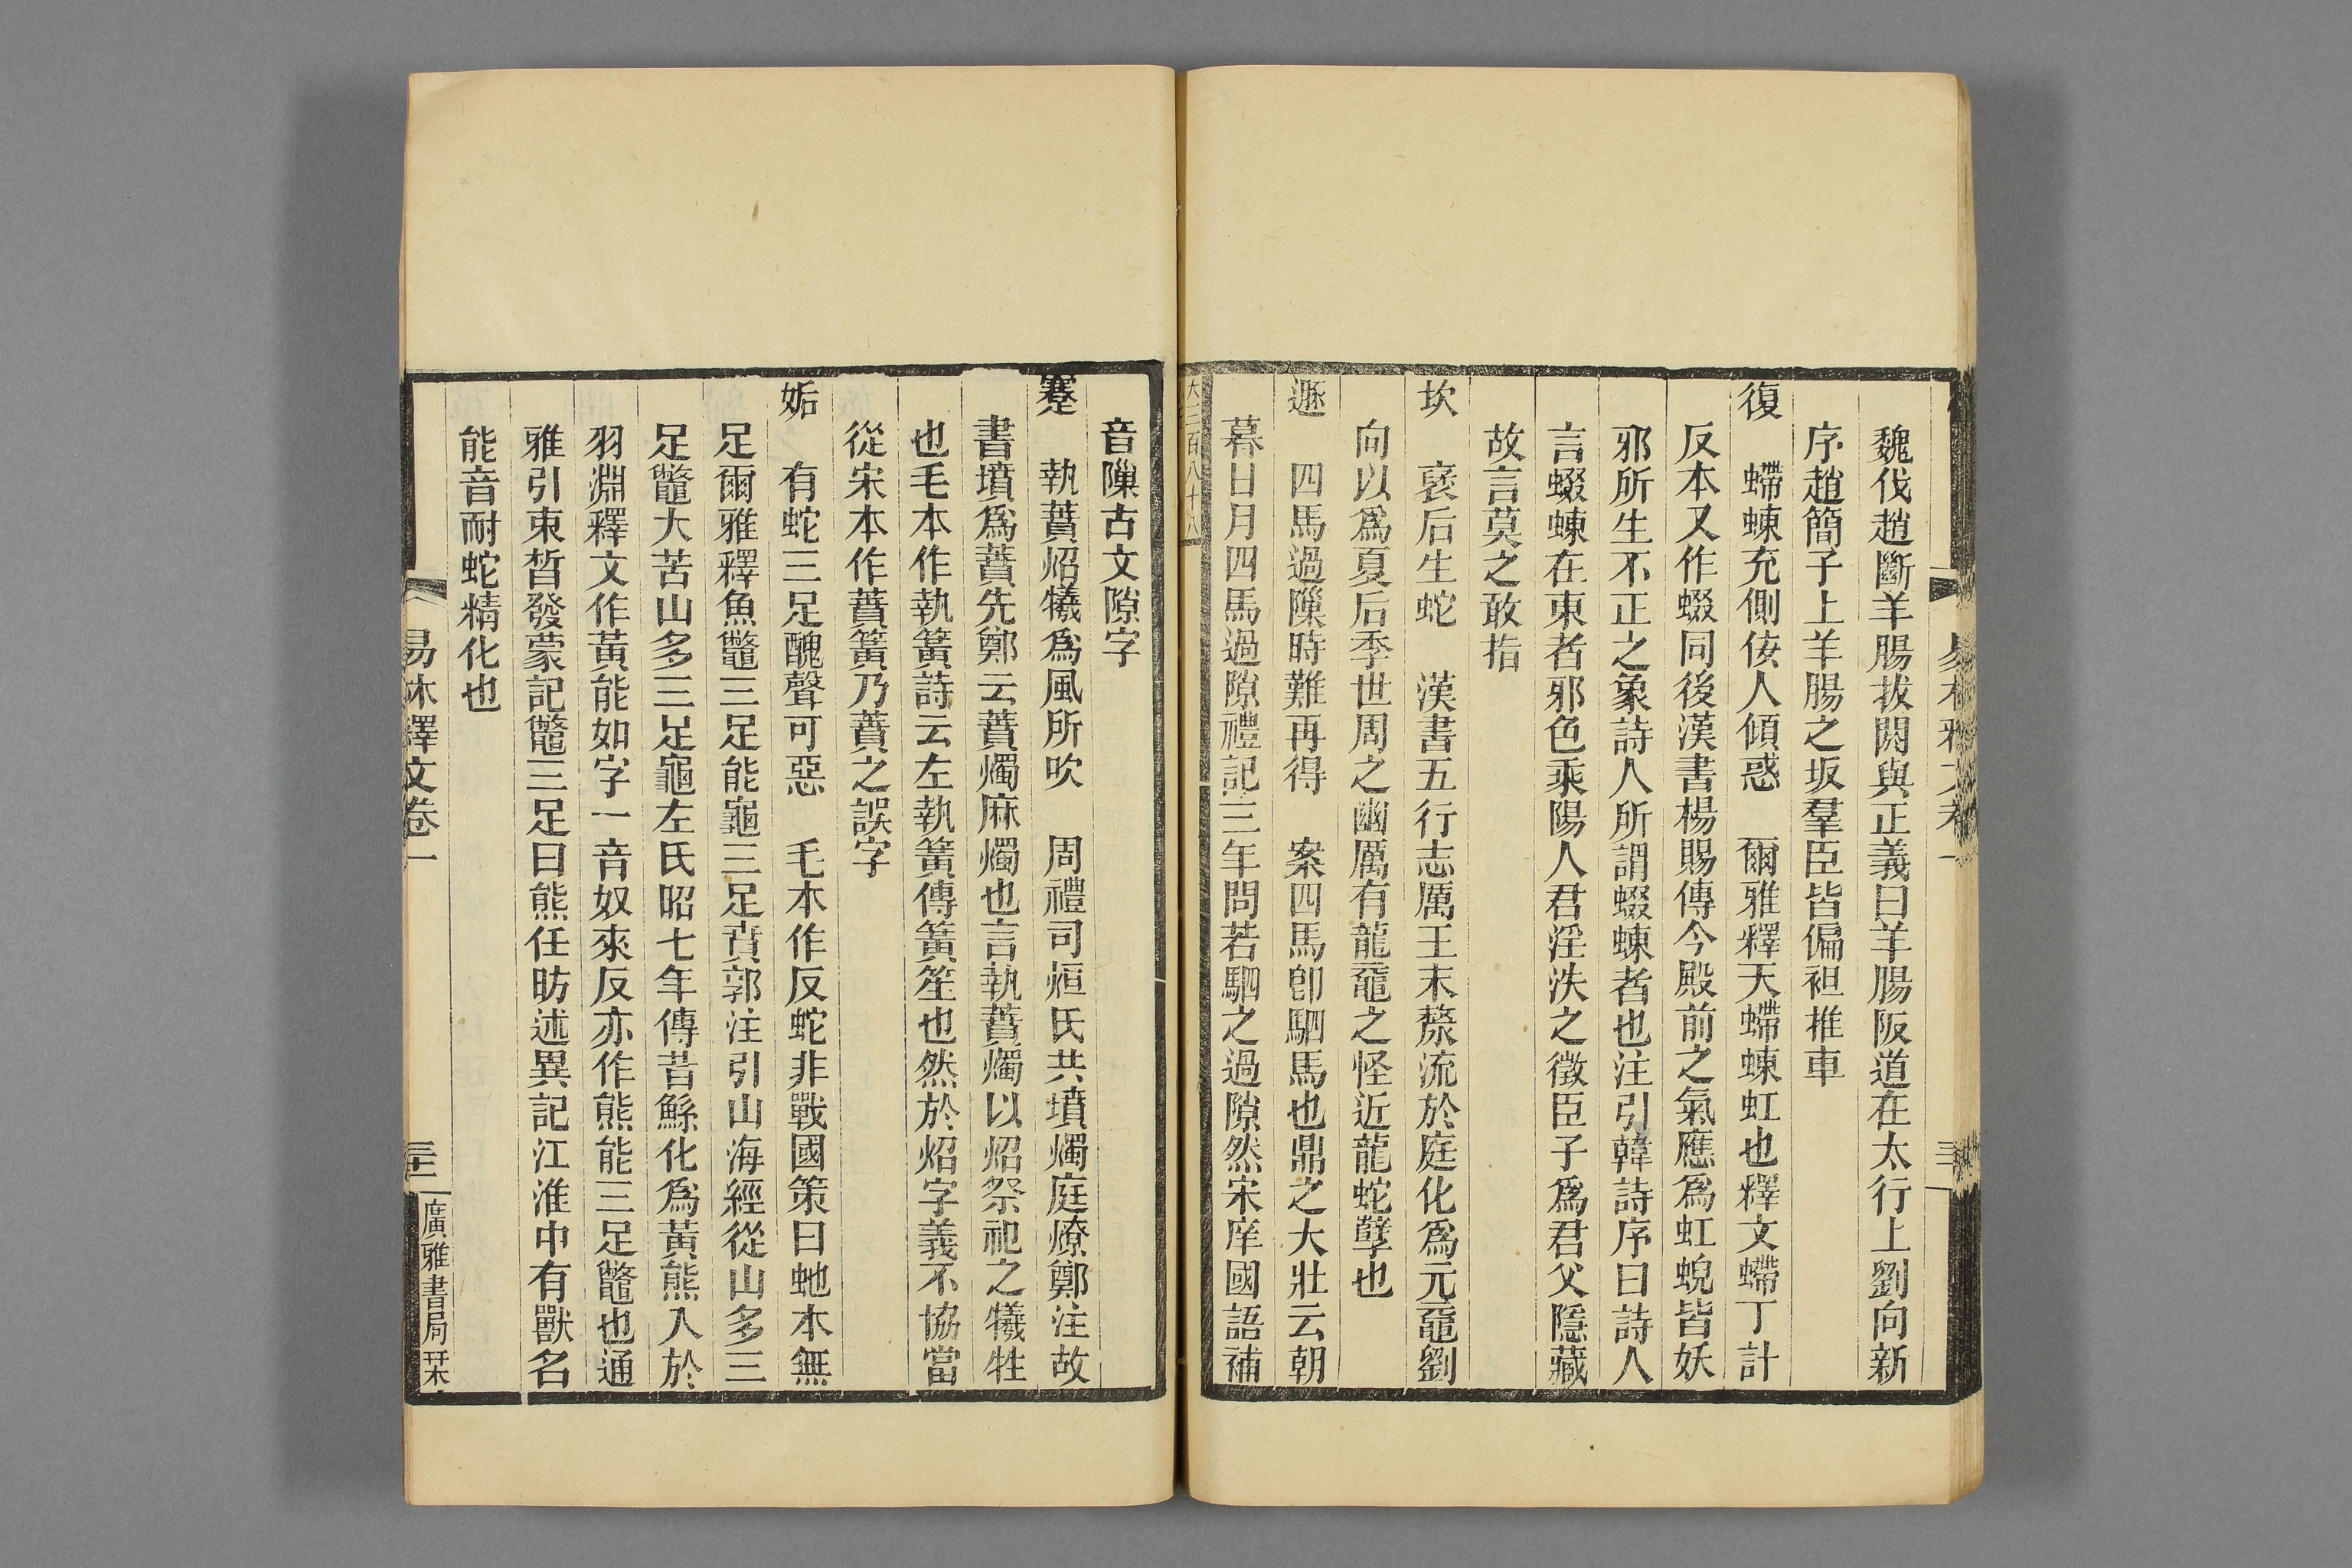 魏伐趙斷羊腸拔閼與正義曰羊腸阪道在太行上劉向新
序趙簡子上羊腸之坂羣臣皆偏袒推車
復 螮蝀充側佞人傾惑 爾雅釋天螮蝀虹也釋文螮丁計
反本又作蝃同後漢書楊賜傳今殿前之氣應爲虹蜺皆妖
邪所生不正之象詩人所謂蝃蝀者也注引韓詩序曰詩人
言蝃蝀在東者邪色乘陽人君淫泆之徵臣子爲君父隱藏
故言莫之敢指
坎 襃后生蛇 漢書五行志厲王末漦流於庭化爲元黿劉
向以爲夏后季世周之幽厲有龍黿之怪近龍蛇孽也
遯 四馬過隟時難再得 案四馬卽駟馬也鼎之大壯云朝
暮日月四馬過隙禮記三年問若駟之過隙然宋庠國語補
大三百八十八
音隟古文隙字
蹇 執蕡炤犧爲風所吹 周禮司烜氏共墳燭庭燎鄭注故
書墳爲蕡先鄭云蕡燭麻燭也言執蕡燭以炤祭祀之犧牲
也毛本作執簧詩云左執簧傳簧笙也然於炤字義不協當
從宋本作蕡簧乃蕡之誤字
姤 有蛇三足醜聲可惡 毛本作反蛇非戰國策曰虵本無
足爾雅釋魚鼈三足能龜三足賁郭注引山海經從山多三
足鼈大苦山多三足龜左氏昭七年傳昔鯀化爲黃熊入於
羽淵釋文作黃能如字一音奴來反亦作熊能三足鼈也通
雅引束晳發蒙記鼈三足曰熊任昉述異記江淮中有獸名
能音耐蛇精化也
易林釋文卷一
三十一
廣雅書局栞